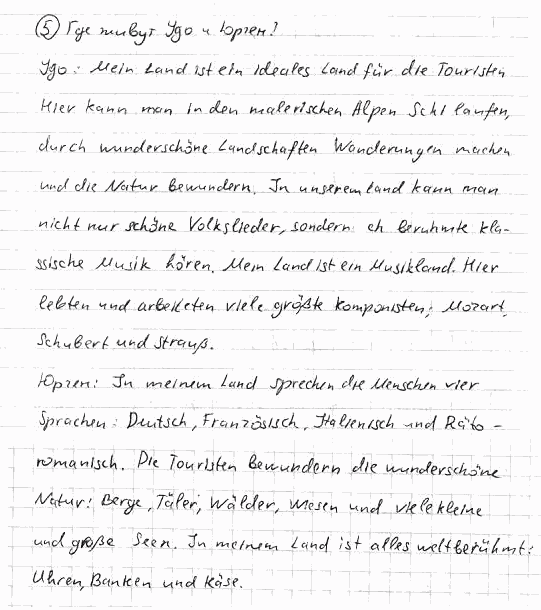 ⑤ Где живут Удо и Юрген?
Удо: Mein Land ist ein ideales Land für die Touristen
Hier kann man in den malerischen Alpen Schi laufen,
durch wunderschöne Landschaften Wanderungen machen
und die Natur bewundern. In unserem land kann man
nicht nur schöne Volkslieder, sondern ch beruhmte kla-
ssische Musik hören. Mein Land ist ein Musikland. Hier
lebten und arbeiteten viele größte Komponisten: Mozart,
Schubert und Strauß.
Юрген: In meinem Land sprechen die Menschen vier
Sprachen: Deutsch, Französisch, Italienisch und Räto-
romanisch. Die Touristen bewundern die wunderschöne
Natur: Berge, Täler, Wälder, Wiesen und viele kleine
und große Seen. In meinem Land ist alles weltberühmt:
Uhren, Banken und Käse.